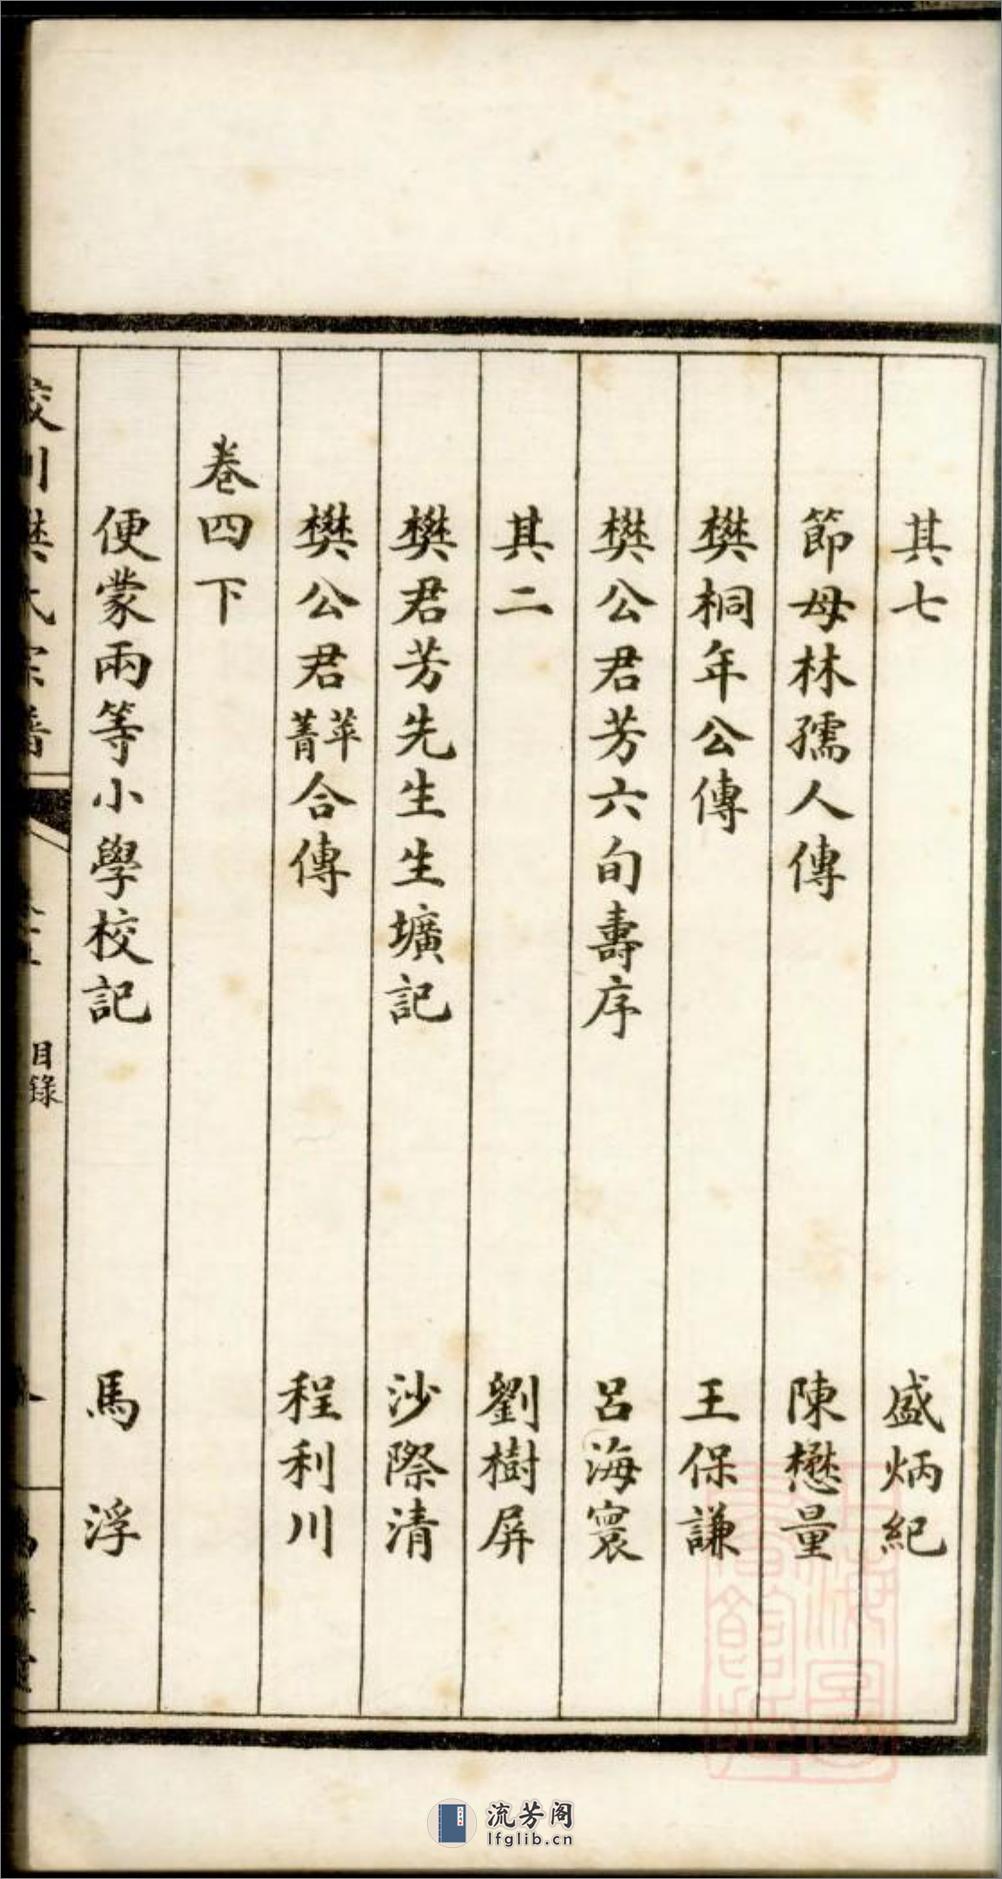 其七 盛炳紀
節母林孺人傳 陳懋量
樊桐年公傳 王保謙
樊公君芳六旬壽序 呂海寰
其二 劉樹屏
樊君芳先生生壙記 沙際清
樊公君苹菁合傳 程利川
卷四下
便蒙兩等小學校記 馬浮
樊氏宗譜
目錄
流芳阁
lfglib.cn